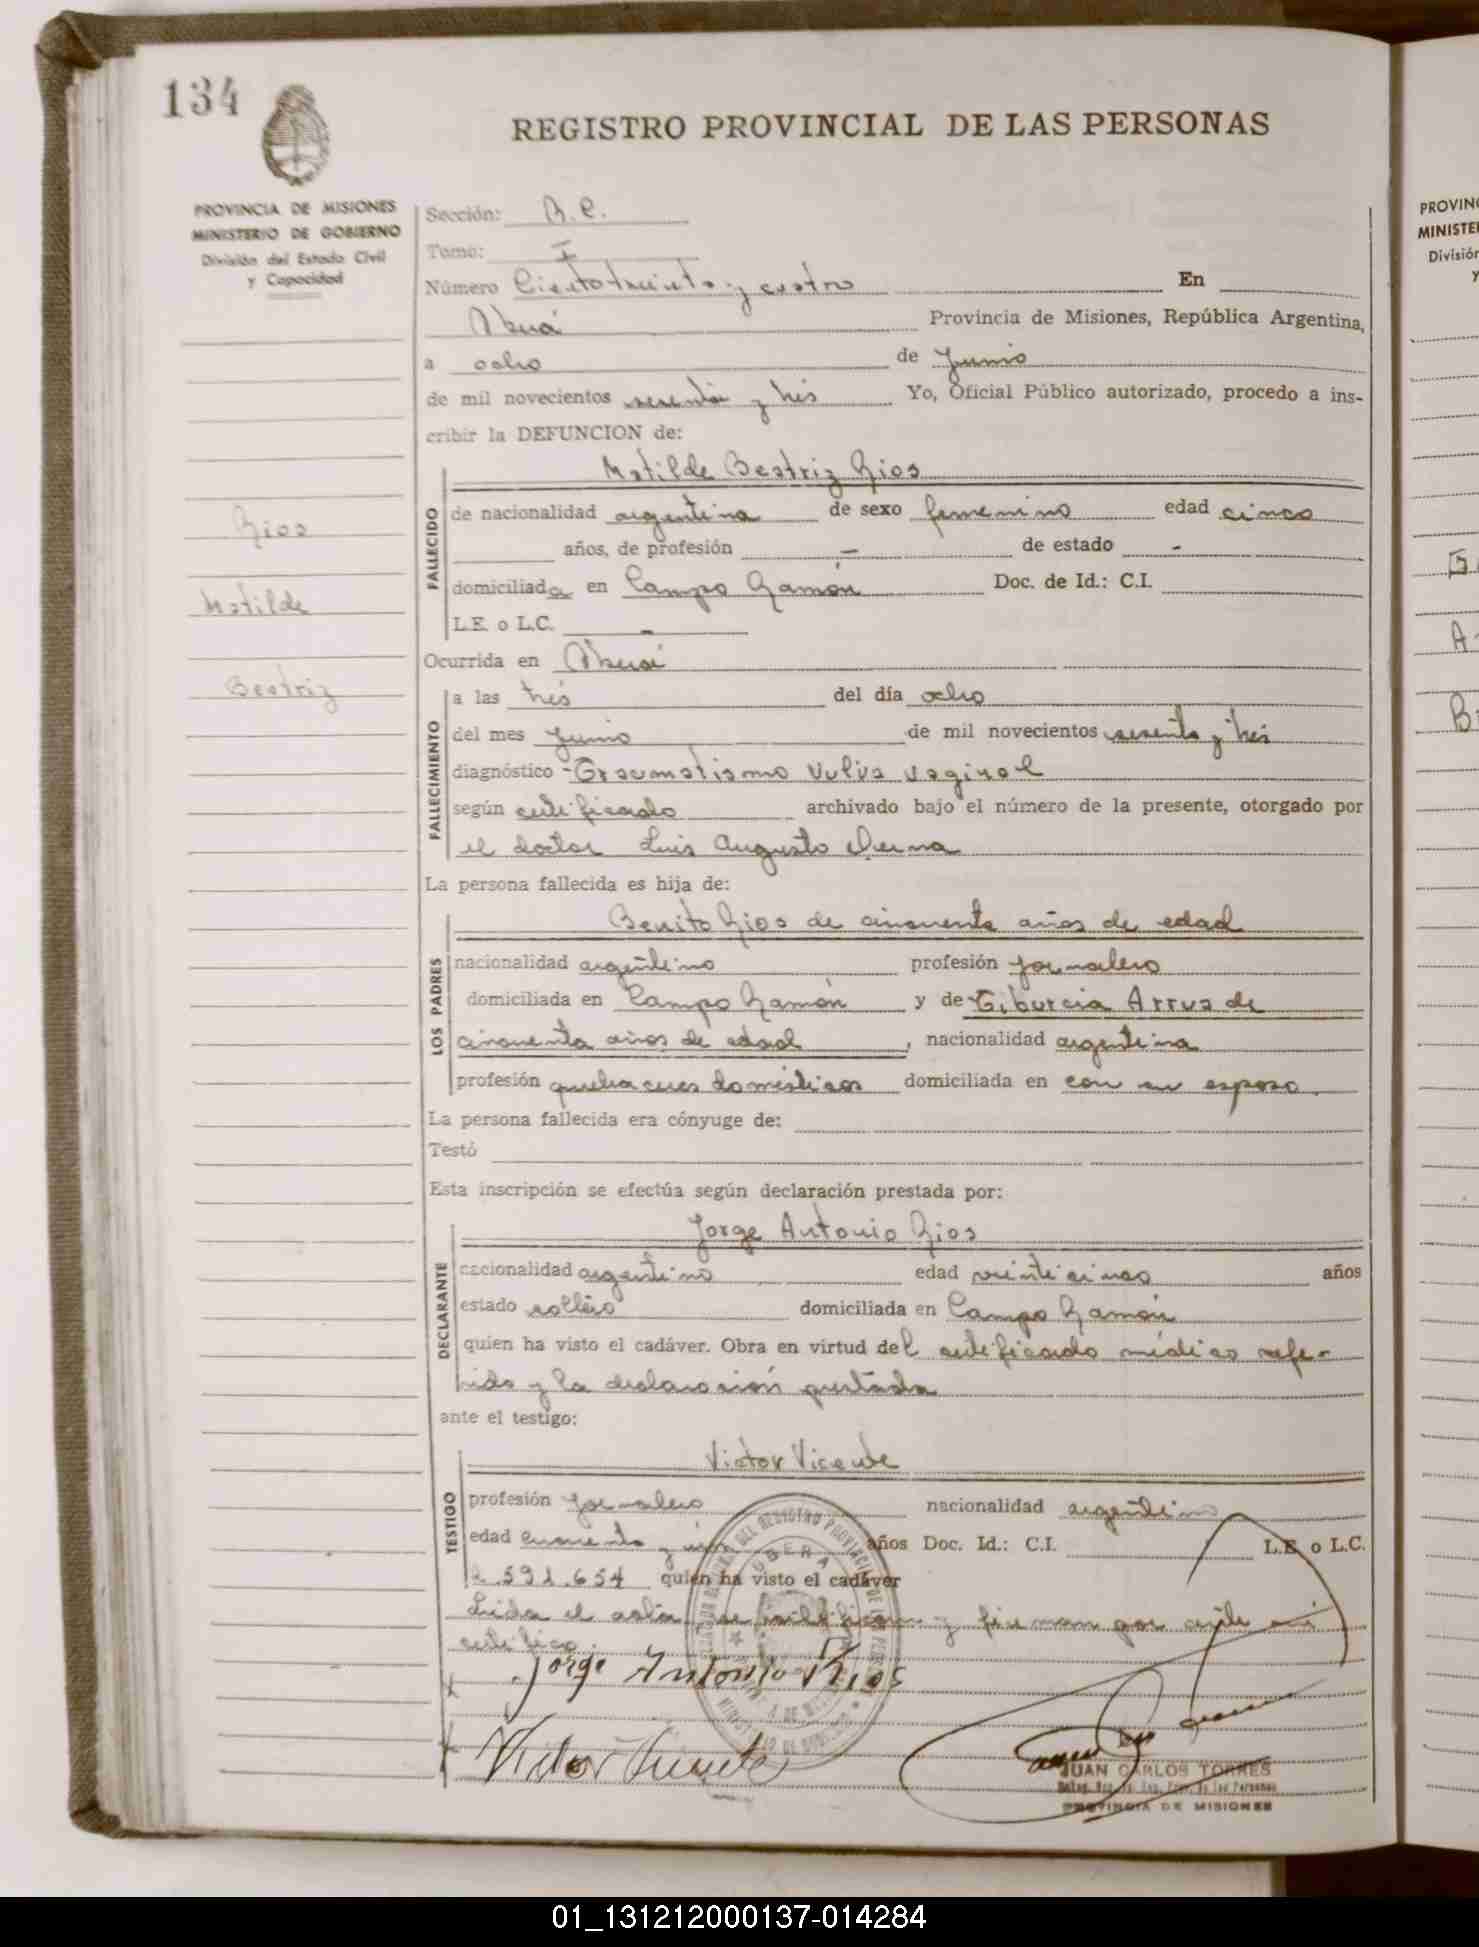 134
REGISTRO PROVINCIAL DE LAS PERSONAS
PROVINCIA DE MISIONES
MINISTERIO DE GOBIERNO
División del Estado Civil
y Capacidad
Rios
Matilde
Beatriz
Sección: R.C.
Tomo: I
Número Ciento treinta y cuatro En
Oberá Provincia de Misiones, República Argentina,
a ocho de Junio
de mil novecientos sesenta y tres Yo, Oficial Público autorizado, procedo a ins-
cribir la DEFUNCION de:
Matilde Beatriz Rios
FALLECIDO
de nacionalidad argentina de sexo femenino edad cinco
años, de profesión — de estado -
domiciliada en Campo Ramón Doc. de Id.: C.I.
L.E. o L.C. -
Ocurrida en Oberá
FALLECIMIENTO
a las tres del día ocho
del mes Junio de mil novecientos sesenta y tres
diagnóstico - Traumatismo vulva vaginal
según certificado archivado bajo el número de la presente, otorgado por
el doctor Luis Augusto
La persona fallecida es hija de:
LOS PADRES
Benito Rios de cincuenta años de edad
nacionalidad argentino profesión Jornalero
domiciliada en Campo Ramón y de Tiburcia Arrua de
cincuenta años de edad, nacionalidad argentina
profesión quehaceres domésticos domiciliada en con su esposo
La persona fallecida era cónyuge de:
Testó
Esta inscripción se efectúa según declaración prestada por:
Jorge Antonio Rios
DECLARANTE
nacionalidad argentino edad veinticinco años
estado soltero domiciliada en Campo Ramón
quien ha visto el cadáver. Obra en virtud del certificado médico refe-
rido y la declaración prestada
ante el testigo:
Victor Vicente
TESTIGO
profesión Jornalero nacionalidad argentino
edad cuarenta y años Doc. Id.: C.I. L.E. o L.C.
2.591.654 quien ha visto el cadáver
Leida el acta, se ratifican y firman por ante mi
certifico.
Jorge Antonio Rios
Victor Vicente
JUAN CARLOS TORRES
PROVINCIA DE MISIONES
PROVINC
MINISTE
División
y
01_131212000137-014284